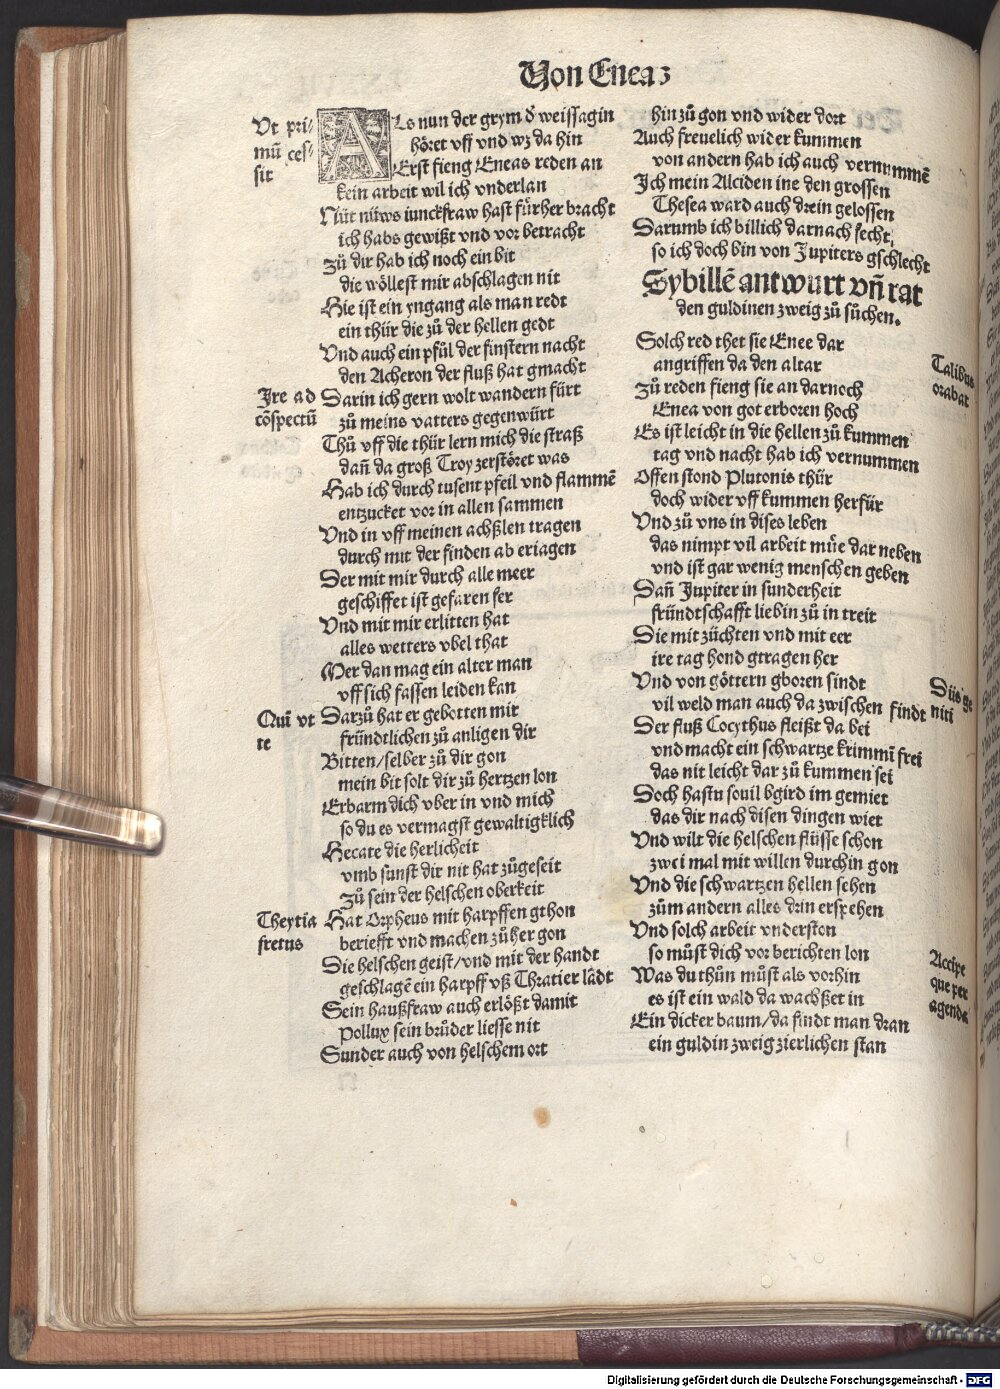 Von Eneaz
Vt pri⸗
mū ces⸗
sit
ALs nun der grym d̕ weissagin
höret vff vnd wz da hin
Erst fieng Eneas reden an
kein arbeit wil ich vnderlan
Nüt nüws iunckfraw hast fürher bracht
ich habs gewißt vnd vor betracht
Zů dir hab ich noch ein bit
die wöllest mir abschlagen nit
Hie ist ein yngang als man redt
ein thür die zů der hellen gedt
Vnd auch ein pfůl der finstern nacht
den Acheron der fluß hat gmacht
Ire ad
cōspectū
Darin ich gern wolt wandern fürt
zů meins vatters gegenwürt
Thů vff die thür lern mich die straß
dañ da groß Troy zerstöret was
Hab ich durch tusent pfeil vnd flammē
entzucket vor in allen sammen
Vnd in vff meinen achßlen tragen
durch mit der finden ab eriagen
Der mit mir durch alle meer
geschiffet ist gefaren fer
Vnd mit mir erlitten hat
alles wetters vbel that
Mer dan mag ein alter man
vff sich fassen leiden kan
Quī vt
te
Darzů hat er gebotten mir
fründtlichen zů anligen dir
Bitten/selber zů dir gon
mein bit solt dir zů hertzen lon
Erbarm dich vber in vnd mich
so du es vermagst gewaltigklich
Hecate die herlicheit
vmb sunst dir nit hat zůgeseit
zů sein der helschen oberkeit
Theytia
fretus
Hat Orpheus mit harpffen gthon
beriefft vnd machen zůher gon
Die helschen geist/vnd mit der handt
geschlagē ein harpff vß Thratier lādt
Sein haußfraw auch erlößt damit
Pollux sein brůder liesse nit
Sunder auch von helschem ort
hin zů gon vnd wider dort
Auch freuelich wider kummen
von andern hab ich auch vernummē
Ich mein Alciden ine den grossen
Thesea ward auch drein gelossen
Darumb ich billich darnach fecht
so ich doch bin von Jupiters gschlecht
Sybillē antwurt vñ rat
den guldinen zweig zů sůchen.
Talibus
orabat
Solch red thet sie Enee dar
angriffen da den altar
Zů reden fieng sie an darnoch
Enea von got erboren hoch
Es ist leicht in die hellen zů kummen
tag vnd nacht hab ich vernummen
Offen stond Plutonis thür
doch wider vff kummen herfür
Vnd zů vns in dises leben
das nimpt vil arbeit müe dar neben
vnd ist gar wenig menschen geben
Dañ Jupiter in sunderheit
fründtschafft liebin zů in treit
Die mit züchten vnd mit eer
ire tag hond gtragen her
Diis ge
niti
Vnd von göttern gboren sindt
vil weld man auch da zwischen findt
Der fluß Cocythus fleißt da bei
vnd macht ein schwartze krimmī frei
das nit leicht dar zů kummen sei
Doch hastu souil bgird im gemiet
das dir nach disen dingen wiet
Vnd wilt die helschen flüsse schon
zwei mal mit willen durchin gon
Vnd die schwartzen hellen sehen
zům andern alles drin erspehen
Vnd solch arbeit vnderston
so můst dich vor berichten lon
Accipe
que per
agenda
Was du thůn můst als vorhin
es ist ein wald da wachßet in
Ein dicker baum/da findt man dran
ein guldin zweig zierlichen stan
Digitalisierung gefördert durch die Deutsche Forschungsgemeinschaft - DFG